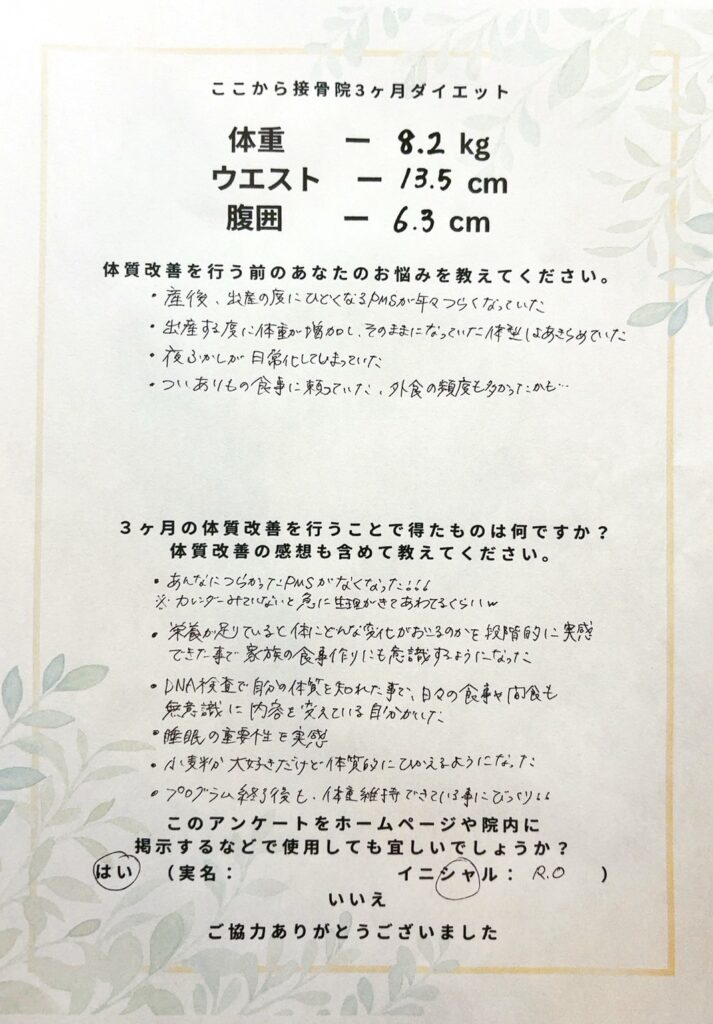 ここから接骨院3ヶ月ダイエット
体重 ー 8.2 kg
ウエスト ー 13.5 cm
腹囲 ー 6.3 cm
体質改善を行う前のあなたのお悩みを教えてください。
・産後、出産の度にひどくなるPMSが年々つらくなっていた
・出産する度に体重が増加し、そのままになっていた体型はあきらめていた
・夜ふかしが日常化してしまっていた
・ついありもの食事に頼っていた、外食の頻度も多かったかも…
3ヶ月の体質改善を行うことで得たものは何ですか?
体質改善の感想も含めて教えてください。
・あんなにつらかったPMSがなくなった!!!
※カレンダーみていないと急に生理がきてあわてるぐらいw
・栄養が足りていると体にどんな変化がおこるのかを段階的に実感
できた事で家族の食事作りにも意識するようになった
・DNA検査で自分の体質を知れた事で、日々の食事や間食も
無意識に内容を変えている自分がいた
・睡眠の重要性を実感
・小麦粉が大好きだけど体質的にひかえるようになった
・プログラム終了後も、体重維持できている事にびっくり!!
このアンケートをホームページや院内に
掲示するなどで使用しても宜しいでしょうか?
はい (実名: イニシャル: R.O )
いいえ
ご協力ありがとうございました